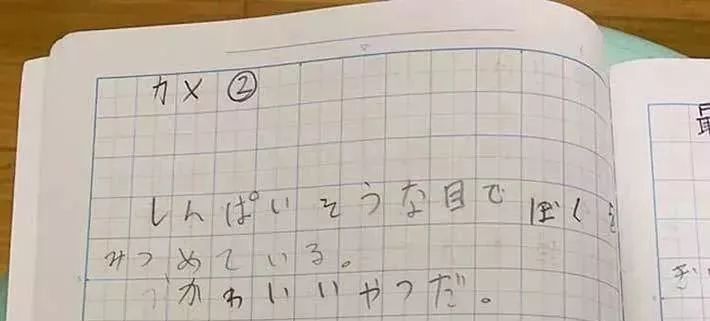 カメ②
しんぱいそうな目でぼくを
みつめている。
かわいいやつだ。